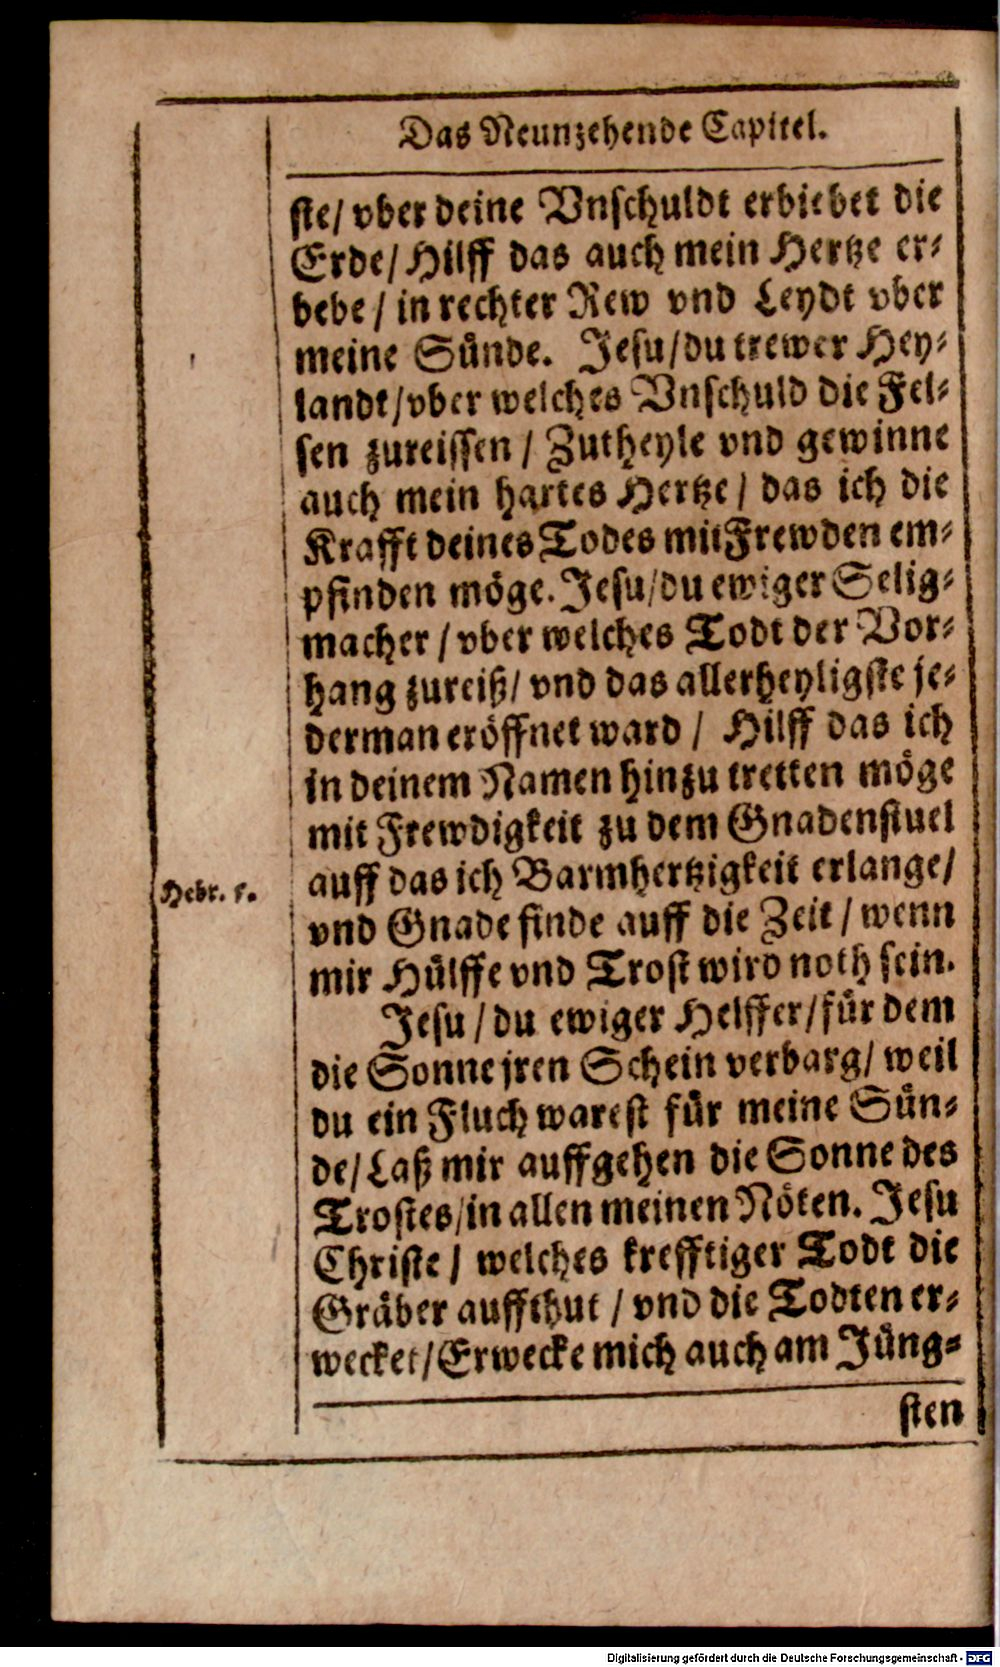 Das Neunzehende Capitel.
ste/ vber deine Vnschuldt erbiebet die
Erde/ Hilff das auch mein Hertze er-
bebe / in rechter Rew vnd Leydt vber
meine Sünde. Jesu/du trewer Hey-
landt/vber welches Vnschuld die Fel-
sen zureissen / Zutheyle vnd gewinne
auch mein hartes Hertze / das ich die
Krafft deines Todes mit Frewden em-
pfinden möge. Jesu/du ewiger Selig-
macher / vber welches Todt der Vor-
hang zureiß/ vnd das allerheyligste je-
derman eröffnet ward / Hilff das ich
in deinem Namen hinzu tretten möge
mit Frewdigkeit zu dem Gnadenstuel
auff das ich Barmhertzigkeit erlange/
Hebr. 5.
vnd Gnade finde auff die Zeit / wenn
mir Hülffe vnd Trost wird noth sein.
Jesu / du ewiger Helffer/für dem
die Sonne jren Schein verbarg/ weil
du ein Fluch warest für meine Sün-
de/ Laß mir auffgehen die Sonne des
Trostes/in allen meinen Nöten. Jesu
Christe / welches krefftiger Todt die
Gräber auffthut / vnd die Todten er-
wecket/Erwecke mich auch am Jüng-
sten
Digitalisierung gefördert durch die Deutsche Forschungsgemeinschaft - DFG